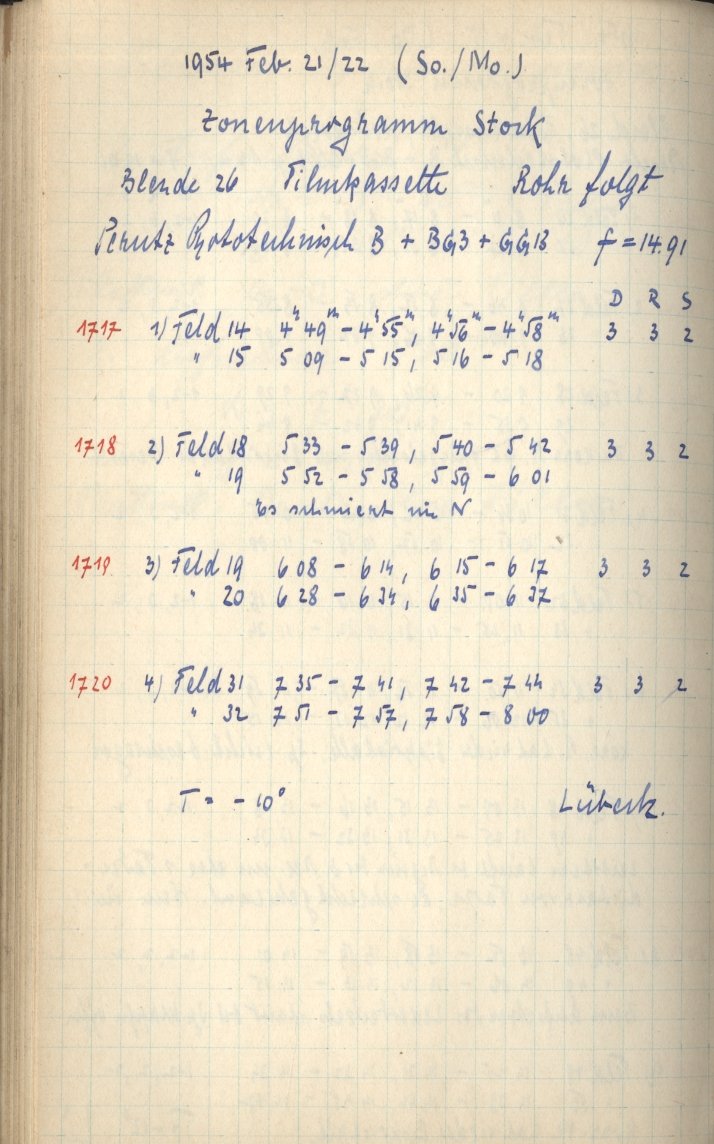 1954 Feb. 21/22 (So./Mo.)
Zonenprogramm Stock
Blende 26 Filmkassette Rohr folgt
Perutz Phototechnisch B + BG3 + GG13 f = 14.91
D R S
1717 1) Feld 14 4ʰ49ᵐ – 4ʰ55ᵐ, 4ʰ56ᵐ – 4ʰ58ᵐ 3 3 2
" 15 5 09 – 5 15, 5 16 – 5 18
1718 2) Feld 18 5 33 – 5 39, 5 40 – 5 42 3 3 2
" 19 5 52 – 5 58, 5 59 – 6 01
Es schmiert in N
1719 3) Feld 19 6 08 – 6 14, 6 15 – 6 17 3 3 2
" 20 6 28 – 6 34, 6 35 – 6 37
1720 4) Feld 31 7 35 – 7 41, 7 42 – 7 44 3 3 2
" 32 7 51 – 7 57, 7 58 – 8 00
T = – 10° Lübeck.